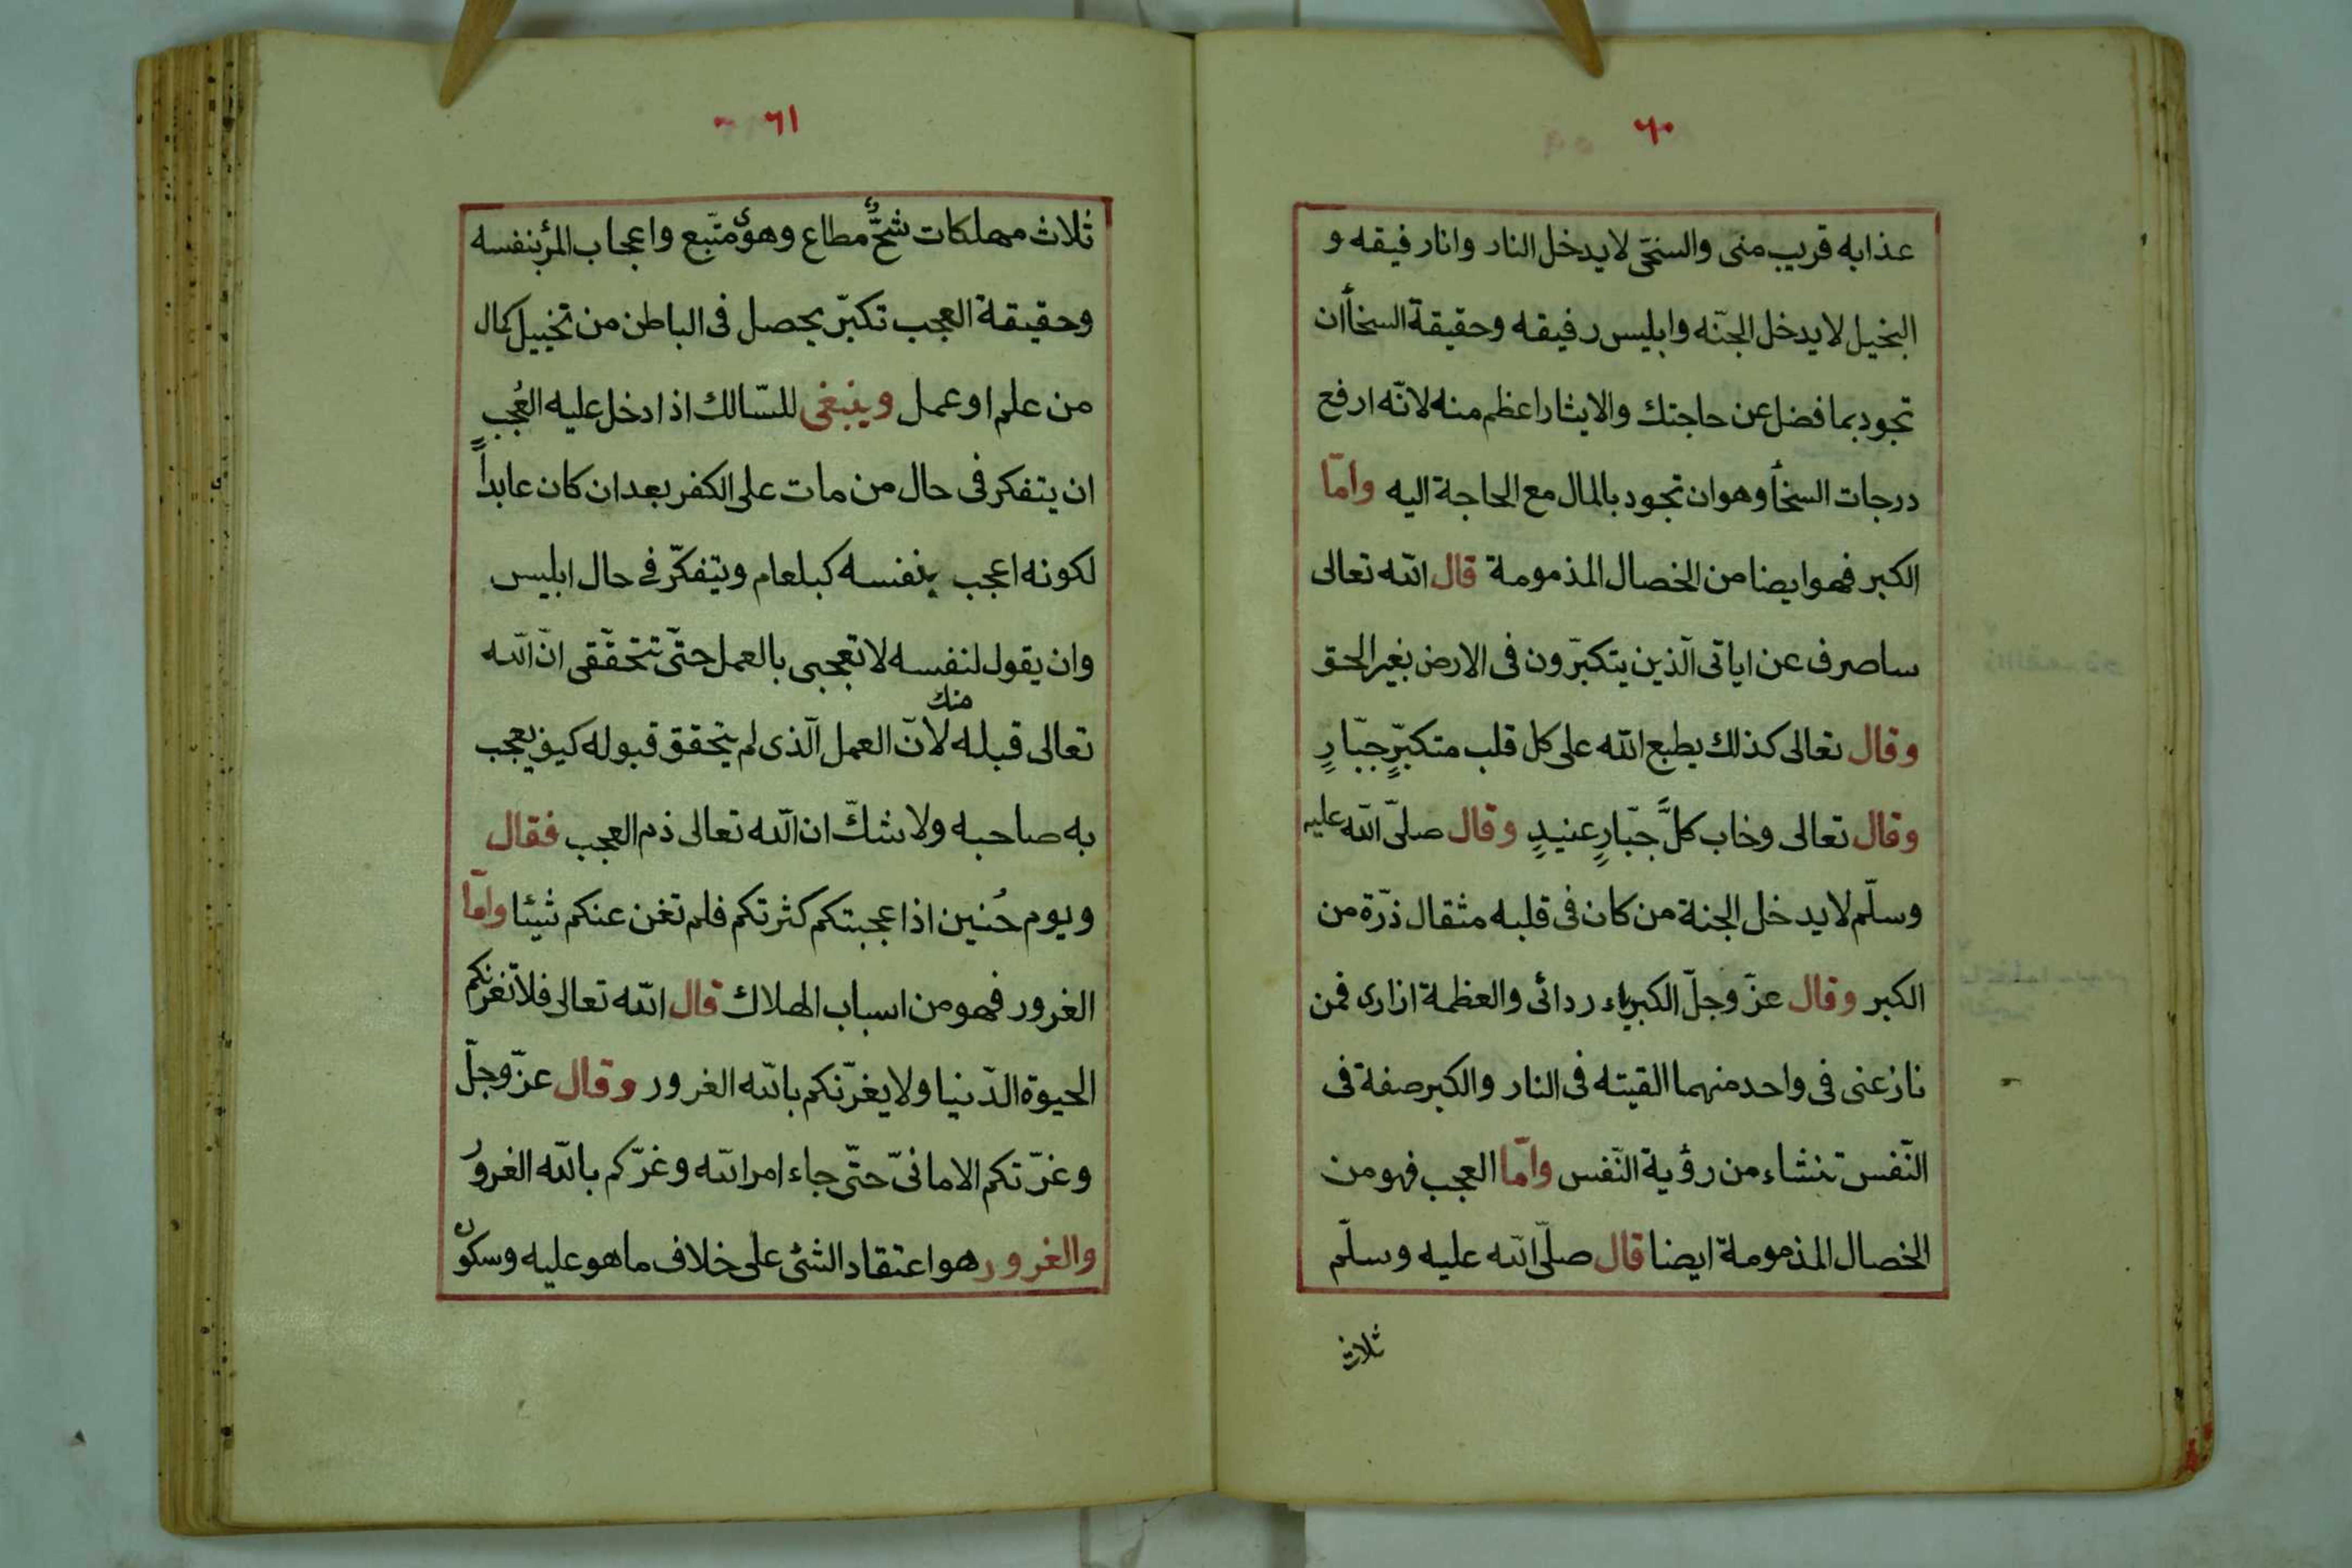 ٦٠
عذابه قريب منى والسخّى لا يدخل النار وانا رفيقه و
البخيل لا يدخل الجنّه وابليس رفيقه وحقيقة السخأ ان
تجود بما فضل عن حاجتك والايثار اعظم منه لانّه ارفع
درجات السخأ وهو ان تجود بالمال مع الحاجة اليه وامّا
الكبر فهو ايضا من الخصال المذمومة قال الله تعالى
ساصرف عن اياتى الّذين يتكبّرون فى الارض بغير الحق
وقال تعالى كذلك يطبع الله على كل قلب متكبّرٍ جبّارٍ
وقال تعالى وخاب كلَّ جبّارٍ عنيدٍ وقال صلّى الله عليه
وسلّم لا يدخل الجنة من كان فى قلبه مثقال ذرّة من
الكبر وقال عزّ وجلّ الكبرياء ردائى والعظمة ازارى فمن
نازعنى فى واحد منهما القيته فى النار والكبر صفة فى
النّفس تنشاء من رؤية النّفس وامّا العجب فهو من
الخصال المذمومة ايضا قال صلّى الله عليه وسلّم
ثلاث
٦١
ثلاث مهلكات شحٌّ مطاع وهوًى متّبع واعجاب المرٔ بنفسه
وحقيقة العجب تكبّر يحصل فى الباطن من تخييل كمال
من علم او عمل وينبغى للسّالك اذا دخل عليه العُجب
ان يتفكر فى حال من مات على الكفر بعد ان كان عابداً
لكونه اعجب بنفسه كبلعام ويتفكّر فى حال ابليس
وان يقول لنفسه لا تعجبى بالعمل حتّى تتحقّقى انّ الله
تعالى قبله منك لانّ العمل الّذى لم يتحقق قبوله كيف يعجب
به صاحبه ولا شكّ ان الله تعالى ذم العجب فقال
ويوم حُنين اذ اعجبتكم كثرتكم فلم تغن عنكم شيئا وامّا
الغرور فهو من اسباب الهلاك قال الله تعالى فلا تغرنكم
الحيوة الدّنيا ولا يغرّنكم بالله الغرور وقال عزّ وجلّ
وغرّتكم الامانىّ حتّى جاء امر الله وغرّكم بالله الغرورُ
والغرور هو اعتقاد الشئ على خلاف ما هو عليه وسكون